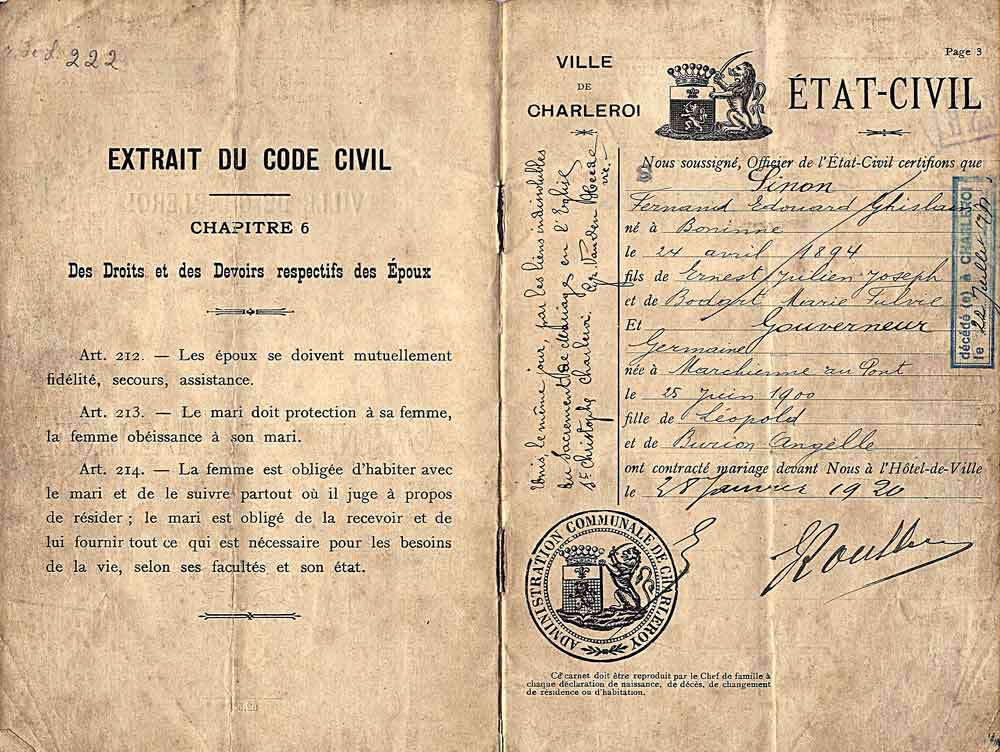 222
EXTRAIT DU CODE CIVIL
CHAPITRE 6
Des Droits et des Devoirs respectifs des Époux
Art. 212. — Les époux se doivent mutuellement
fidélité, secours, assistance.
Art. 213. — Le mari doit protection à sa femme,
la femme obéissance à son mari.
Art. 214. — La femme est obligée d'habiter avec
le mari et de le suivre partout où il juge à propos
de résider ; le mari est obligé de la recevoir et de
lui fournir tout ce qui est nécessaire pour les besoins
de la vie, selon ses facultés et son état.
Page 3
VILLE
DE
CHARLEROI
ÉTAT-CIVIL
Unis, le même jour, par les liens indissolubles
du Sacrement de Mariage, en l'Eglise
St Christophe Charleroi.
vic.
Nous soussigné, Officier de l'État-Civil certifions que
Sinon
Fernand Edouard Ghislain
né à Boninne
le 24 avril 1894
fils de Ernest Julien Joseph
et de Bodart Marie Fulvie
Et Gouverneur
Germaine
née à Marchienne au Pont
le 25 Juin 1900
fille de Léopold
et de Burion Angèlle
ont contracté mariage devant Nous à l'Hôtel-de-Ville
le 28 Janvier 1920
décédé(e) à CHARLEROI
le 22 Juillet
ADMINISTRATION COMMUNALE DE CHARLEROY
Ce carnet doit être reproduit par le Chef de famille à
chaque déclaration de naissance, de décès, de changement
de résidence ou d'habitation.